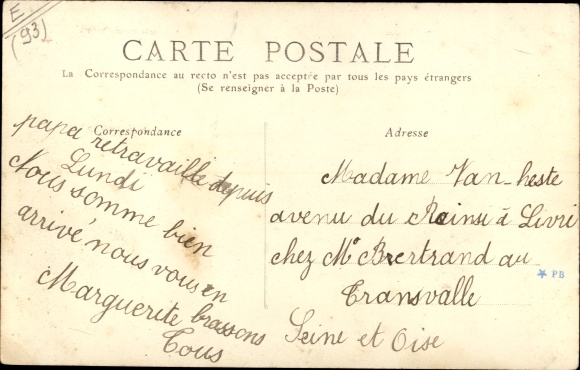 E
(93)
CARTE POSTALE
La Correspondance au recto n'est pas acceptée par tous les pays étrangers
(Se renseigner à la Poste)
Correspondance
papa retravaille depuis
Lundi
Nous somme bien
arrivé nous vous en
brassons
Marguerite
Tous
Adresse
Madame Van-heste
avenu du Rainsi à Livri
chez Mr Brertrand au
Transvalle
Seine et Oise
PB